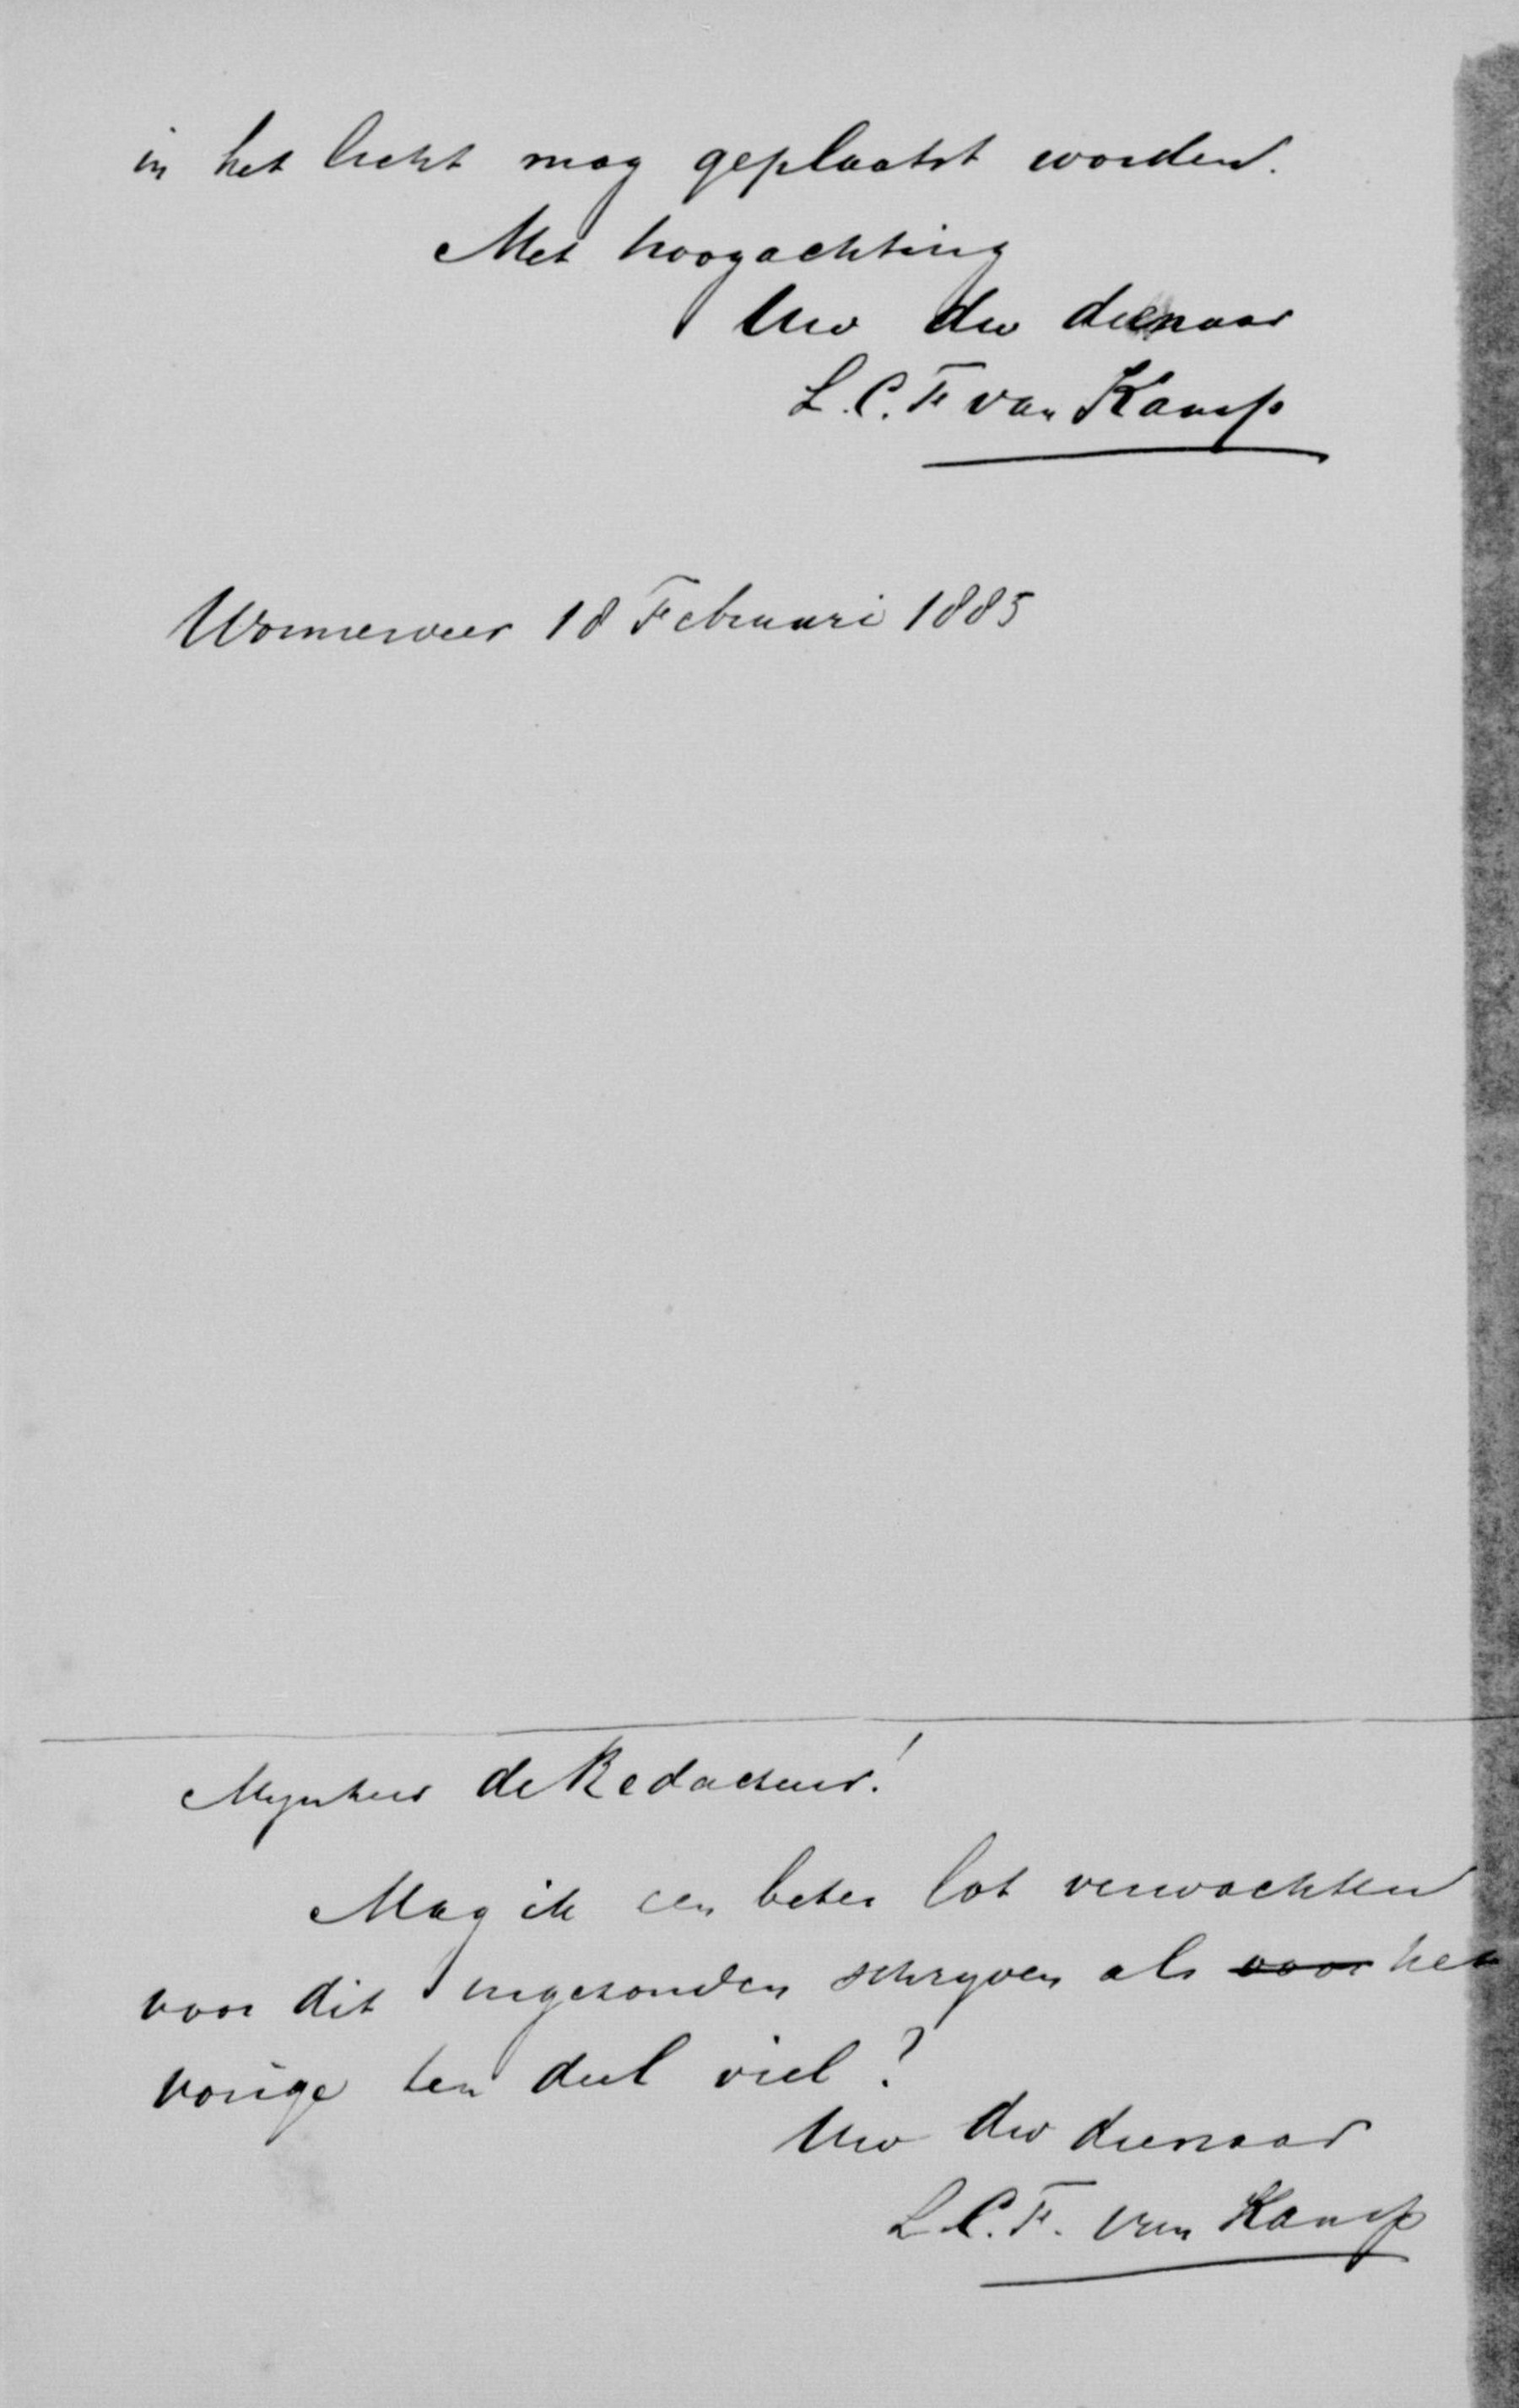 in het licht mag geplaatst worden.
Met hoogachting
Uw dw dienaar
L. C. F van Kamp
Wormerveer 18 Februari 1885
Mynheer de Redacteur!
Mag ik een beter lot verwachten
voor dit ingezonden schryven als voor het
vorige ten deel viel?
Uw dw dienaar
L. C. F. van Kamp